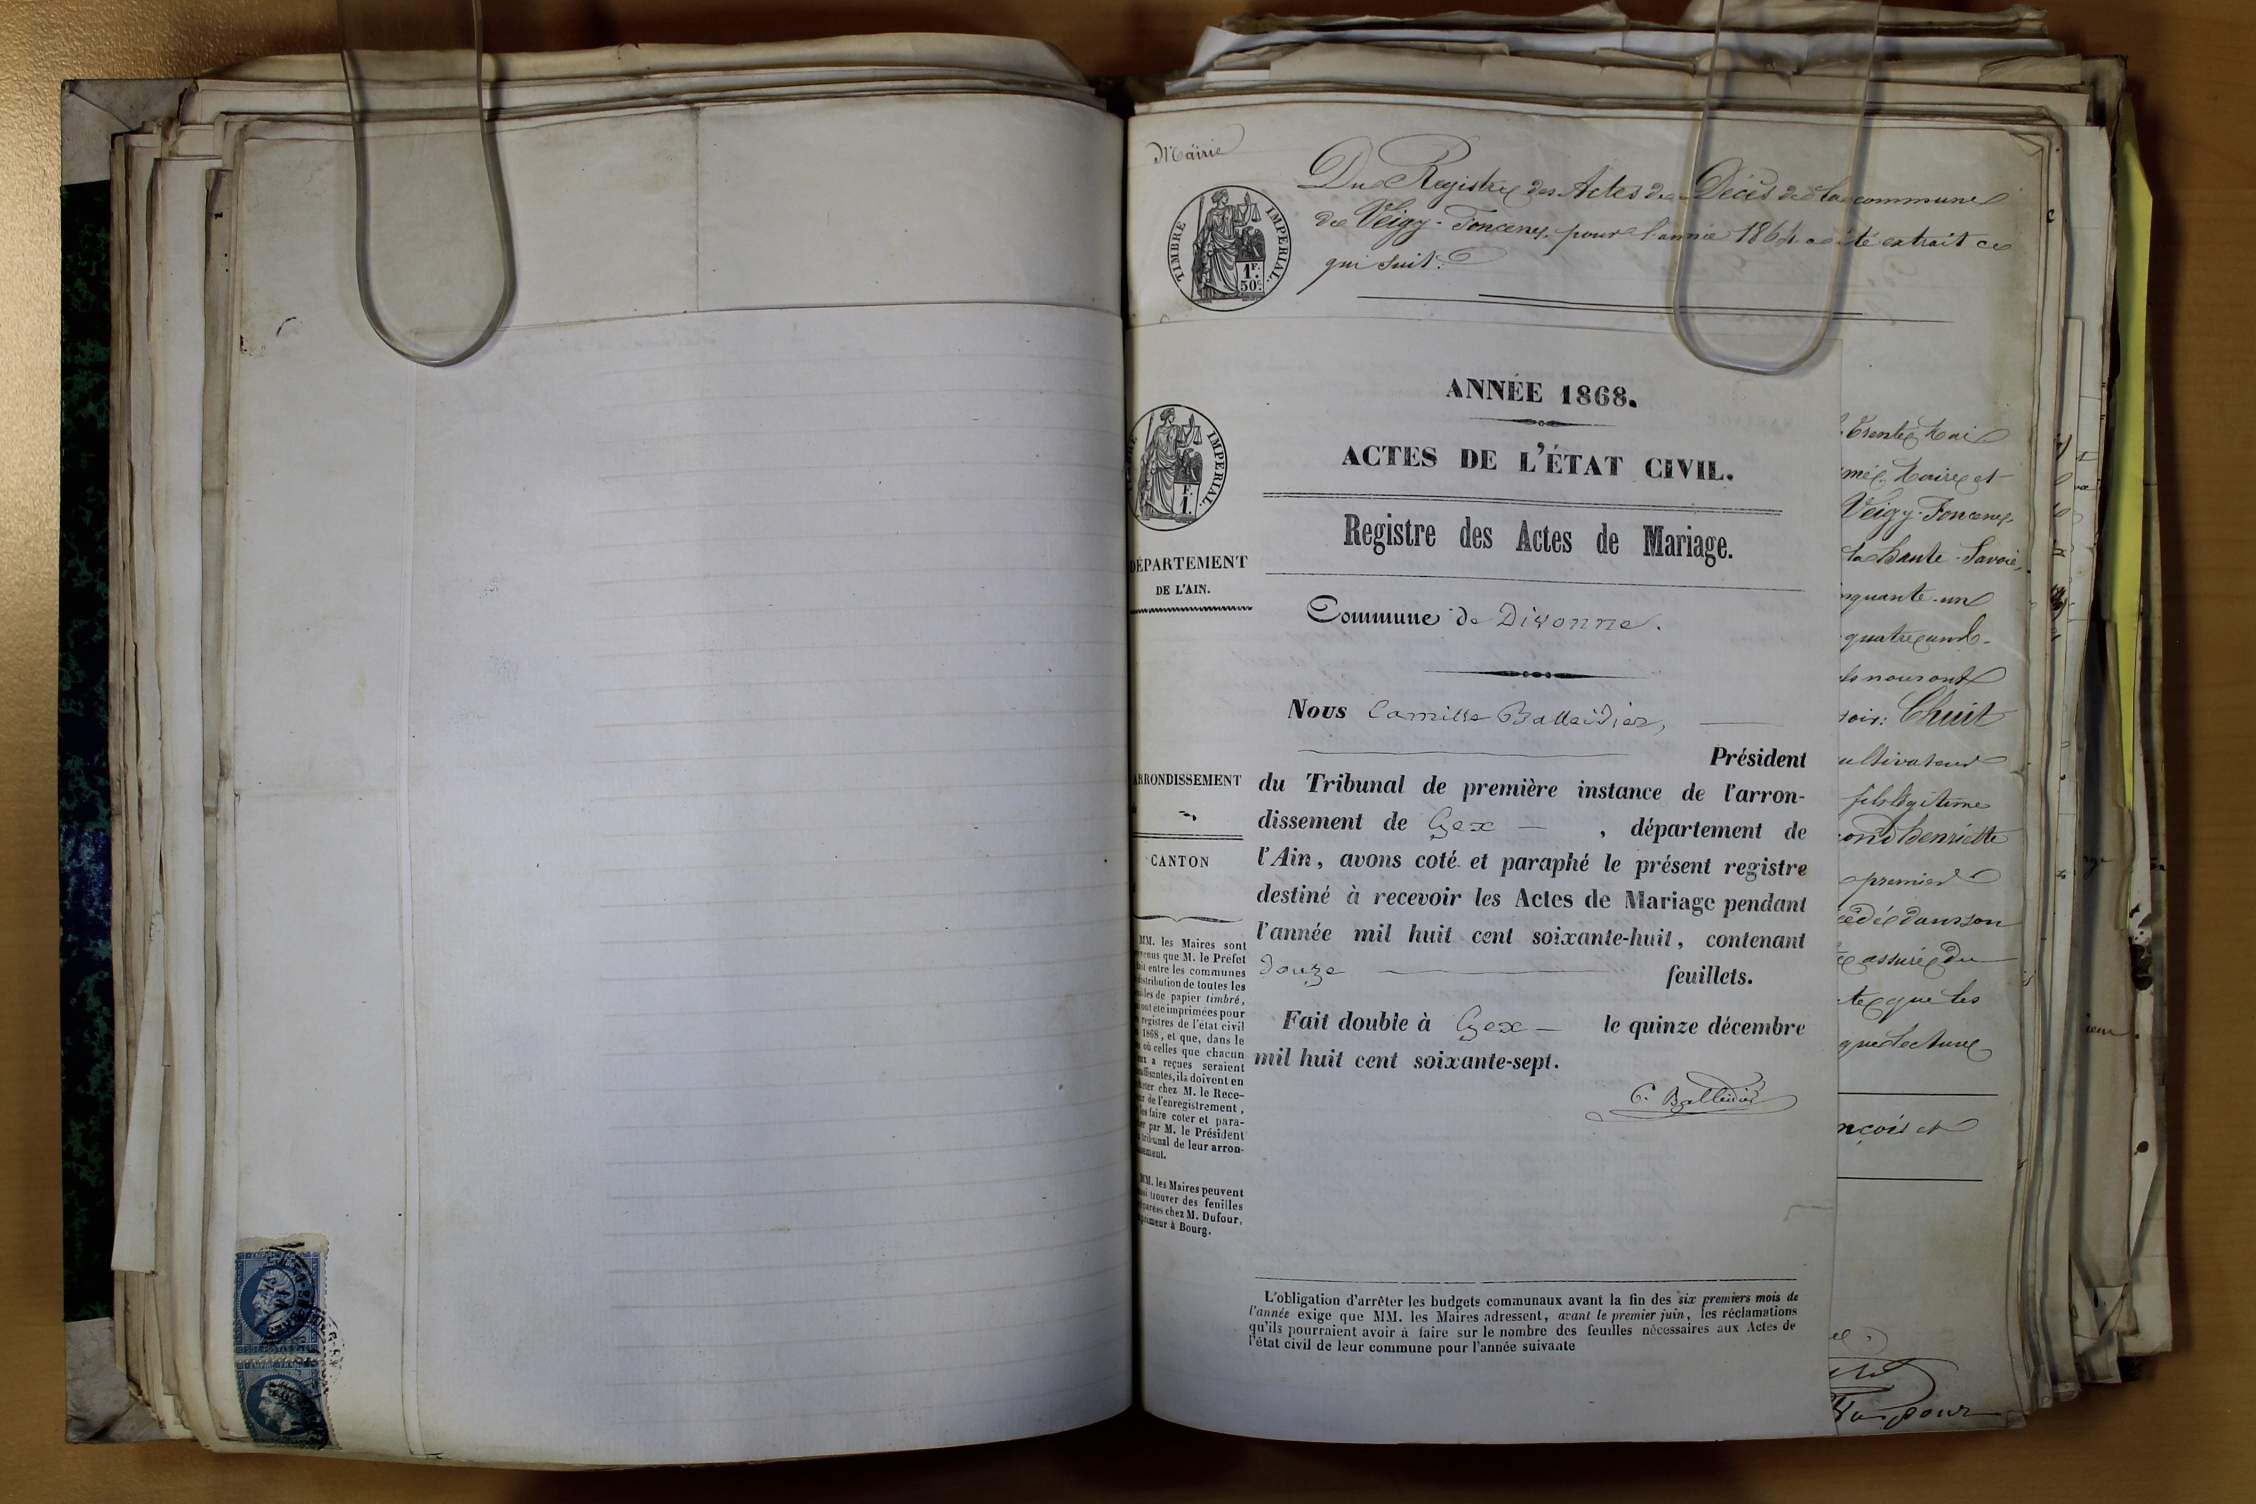 Mairie
Du Registre des Actes de Décès de la commune
de Veigy-Foncenex pour l'année 1864 a été extrait ce
qui suit:
TIMBRE IMPERIAL.
1F.
50c.
ANNÉE 1868.
ACTES DE L'ÉTAT CIVIL.
Registre des Actes de Mariage.
IMPERIAL.
F.
1.
DÉPARTEMENT
DE L'AIN.
Commune de Divonne.
Nous Camille Balleidier,
Président
du Tribunal de première instance de l'arron-
dissement de Gex , département de
l'Ain, avons coté et paraphé le présent registre
destiné à recevoir les Actes de Mariage pendant
l'année mil huit cent soixante-huit, contenant
douze feuillets.
Fait double à Gex le quinze décembre
mil huit cent soixante-sept.
C. Balleidier
ARRONDISSEMENT
CANTON
MM. les Maires sont
que M. le Préfet
entre les communes
distribution de toutes les
de papier timbré,
ont été imprimées pour
registres de l'état civil
1868, et que, dans le
où celles que chacun
a reçues seraient
ils doivent en
chez M. le Rece-
de l'enregistrement,
les faire coter et para-
par M. le Président
tribunal de leur arron-
MM. les Maires peuvent
trouver des feuilles
chez M. Dufour,
à Bourg.
L'obligation d'arrêter les budgets communaux avant la fin des six premiers mois de
l'année exige que MM. les Maires adressent, avant le premier juin, les réclamations
qu'ils pourraient avoir à faire sur le nombre des feuilles nécessaires aux Actes de
l'état civil de leur commune pour l'année suivante
trente Mai
Maire et
Veigy-Foncenex
la Haute-Savoie,
quante-un
quatre
nous ont
Chuit
cultivateur
fils légitime
Henriette
premier
dans son
assuré du
que les
que lecture
et
pour